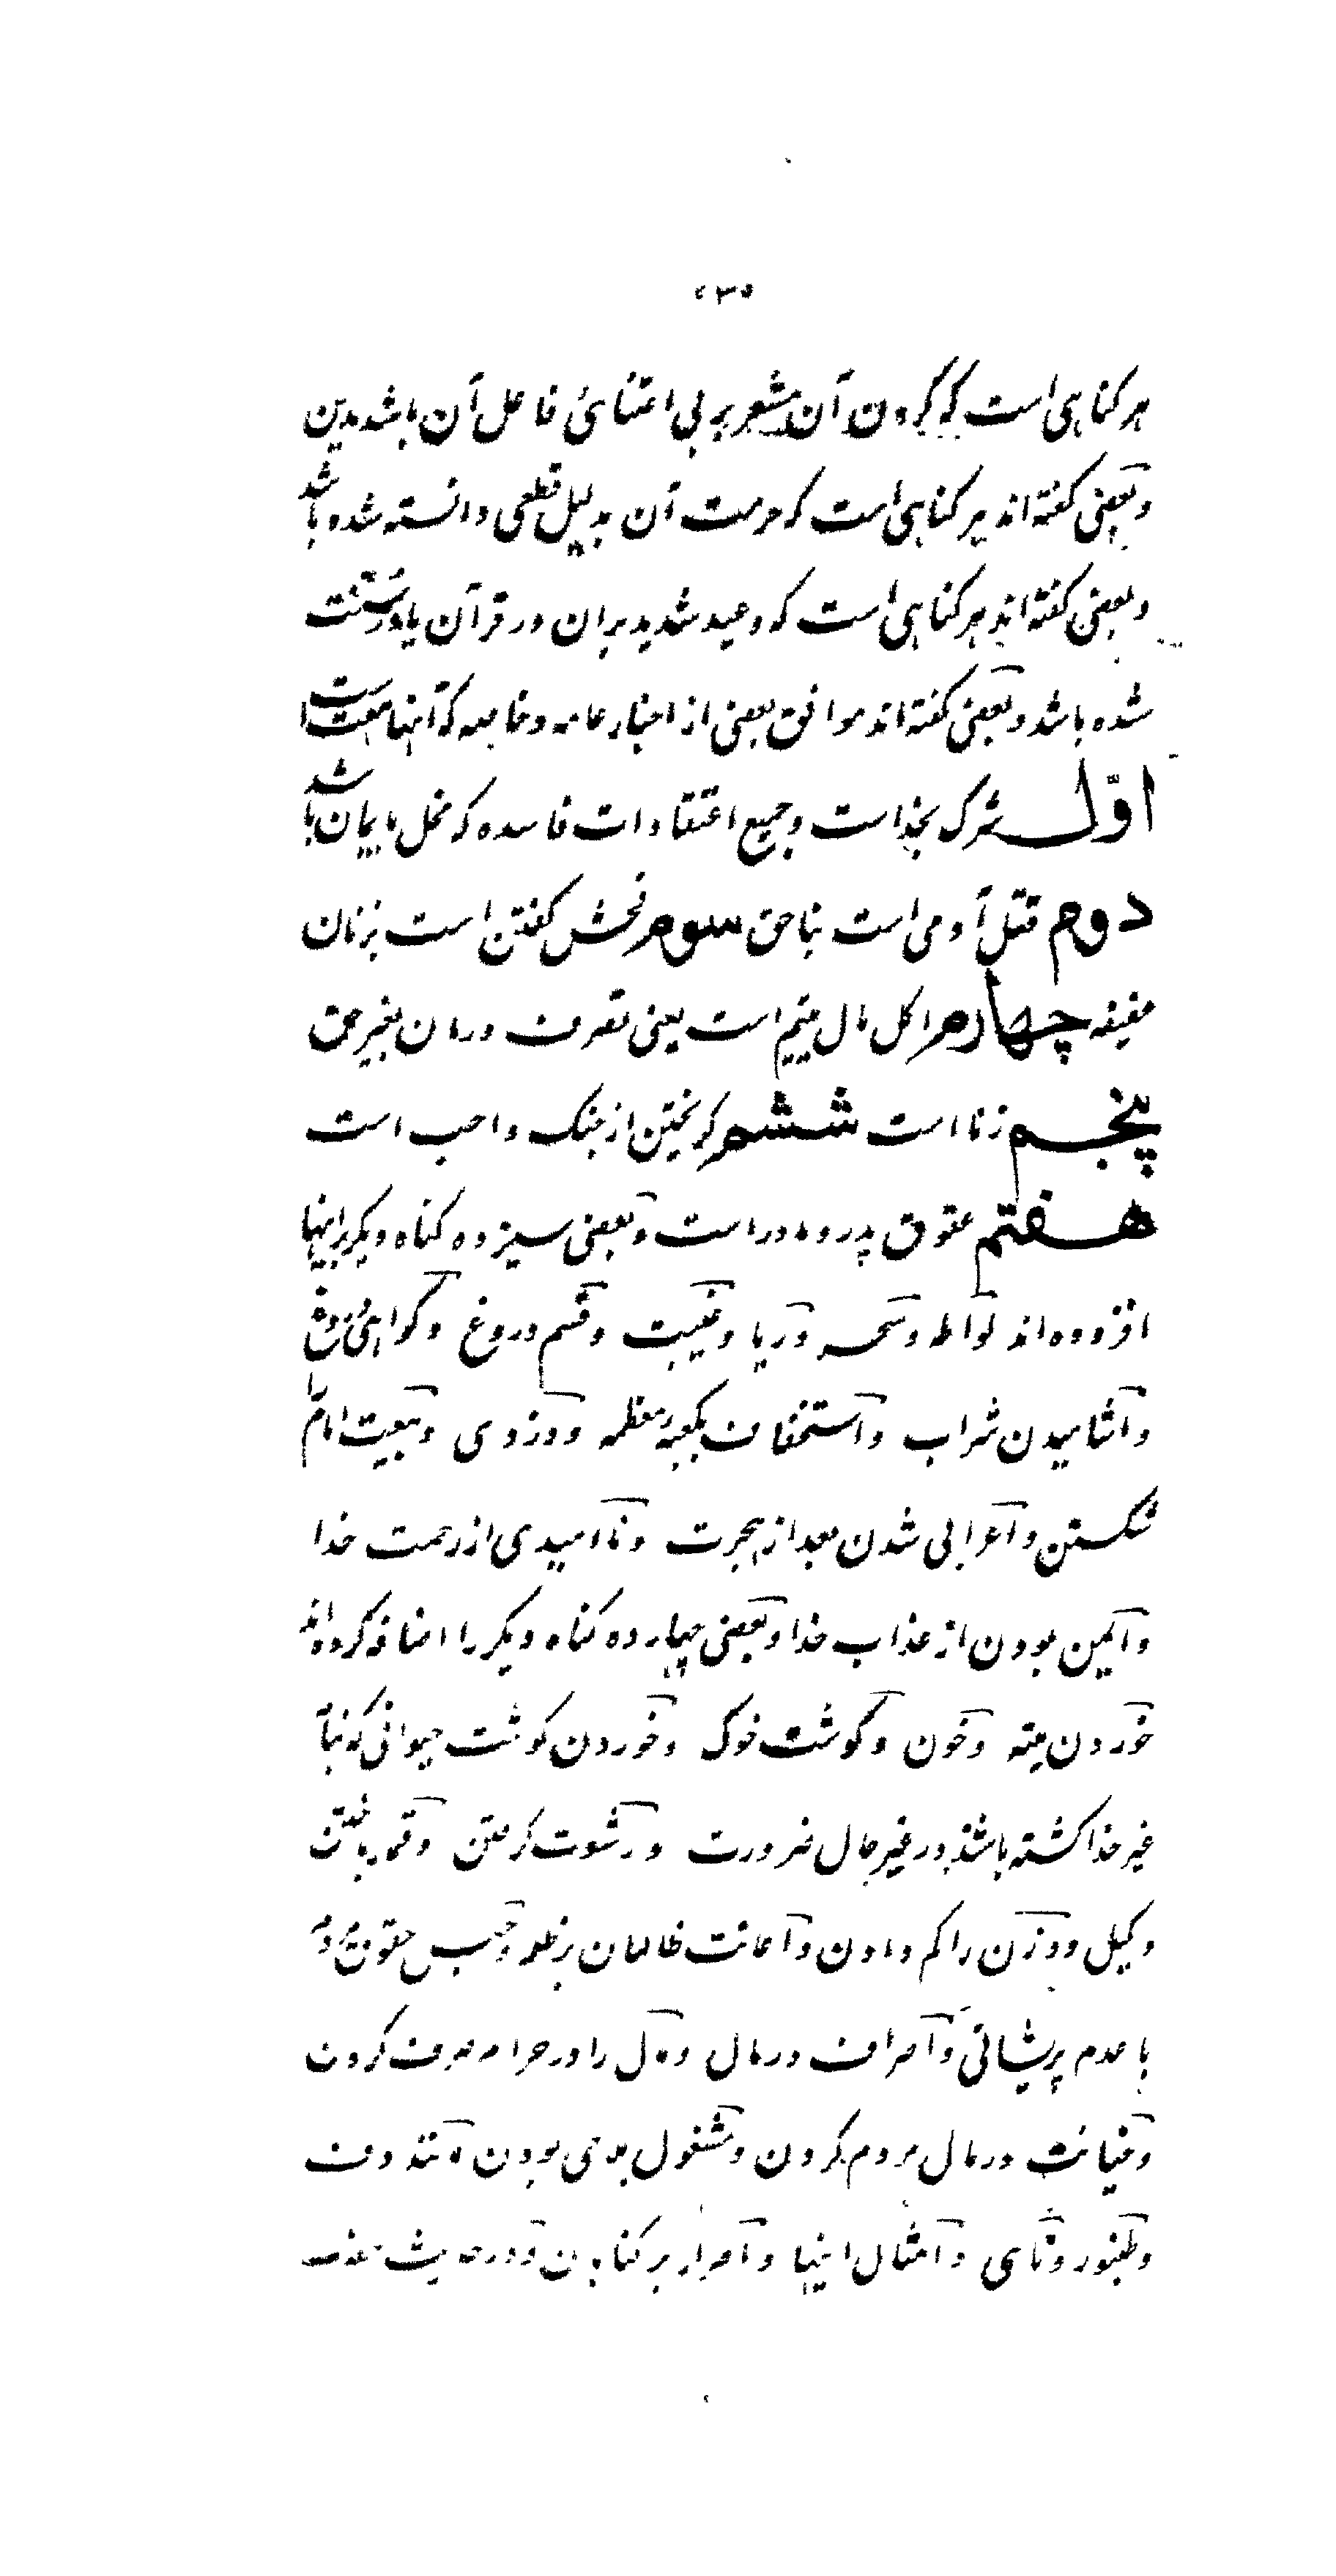 هر کناهی است که کردن آن مشعر بر بی اعتنائی فاعل آن باشد بدین
و بعضی کفته‌اند هر کناهی است که حرمت آن بدلیل قطعی دانسته شده باشد
و بعضی کفته‌اند هر کناهی است که وعید شدید بران در قرآن یا در سنت
شده باشد و بعضی کفته‌اند موافق بعضی از اخبار عامه و خاصه که آنها هفت است
اوّل شرک بخداست و جمیع اعتقادات فاسده که مخل بایمان باشد
دوم قتل آدمی است بناحق سوم فحش کفتن است بزنان
عفیفه چهارم اکل مال یتیم است یعنی تصرف دران بغیر حق
پنجم زنا است ششم کریختن از جنک واجب است
هفتم عقوق پدر و مادر است و بعضی سیزده کناه دیکر براینها
افزوده‌اند لواطه و سحر و ربا و غیبت و قسم دروغ و کواهی دروغ
و آشامیدن شراب و استخفاف بکعبه معظمه و دزدی و بیعت امام را
شکستن و اعرابی شدن بعد از هجرت و ناامیدی از رحمت خدا
و ایمن بودن از عذاب خدا و بعضی چهارده کناه دیکر را اضافه کرده‌اند
خوردن میته و خون و کوشت خوک و خوردن کوشت حیوانی که بنام
غیر خدا کشته باشند در غیر حال ضرورت و رشوت کرفتن و قمار باختن
و کیل و وزن را کم دادن و اعانت ظالمان بر ظلم و حبس حقوق مردم
با عدم پریشانی و اسراف در مال و مال را در حرام صرف کردن
و خیانت در مال مردم کردن و مشغول بلاهی بودن مانند دف
و طنبور و نای و امثال اینها و اصرار بر کناهان و در حدیث